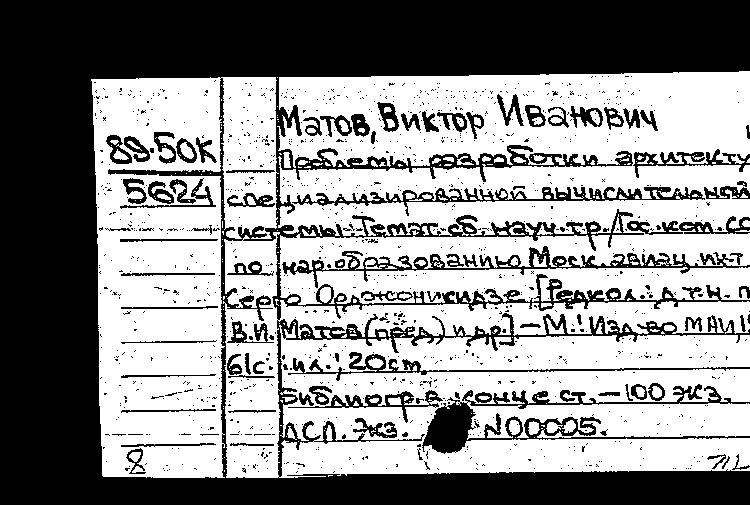 Матов, Виктор Иванович
89-50К
Проблемы разработки архитекту
5624 специализированной вычислительной
системы: Темат. сб. науч. тр. / Гос. ком. СС
по нар. образованию, Моск. авиац. ин-т
Серго Орджоникидзе; [Редкол.: д.т.н. п
В.И. Матов (пред.) и др.] – М.: Изд-во МАИ, 1
61с. : ил.; 20 cm.
Библиогр. в конце ст. – 100 экз.
ДСП. Экз. N00005.
8